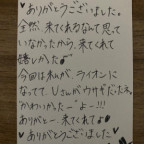 ありがとうございました。
全然、来てくれるなんて思って
いなかったから、来てくれて
嬉しかった♪
今回は私が、ライオンに
なってて、Uさんがウサギだったネ。
"かわいかったーよー!!!
ありがとー、来てくれて♪
ありがとうございました